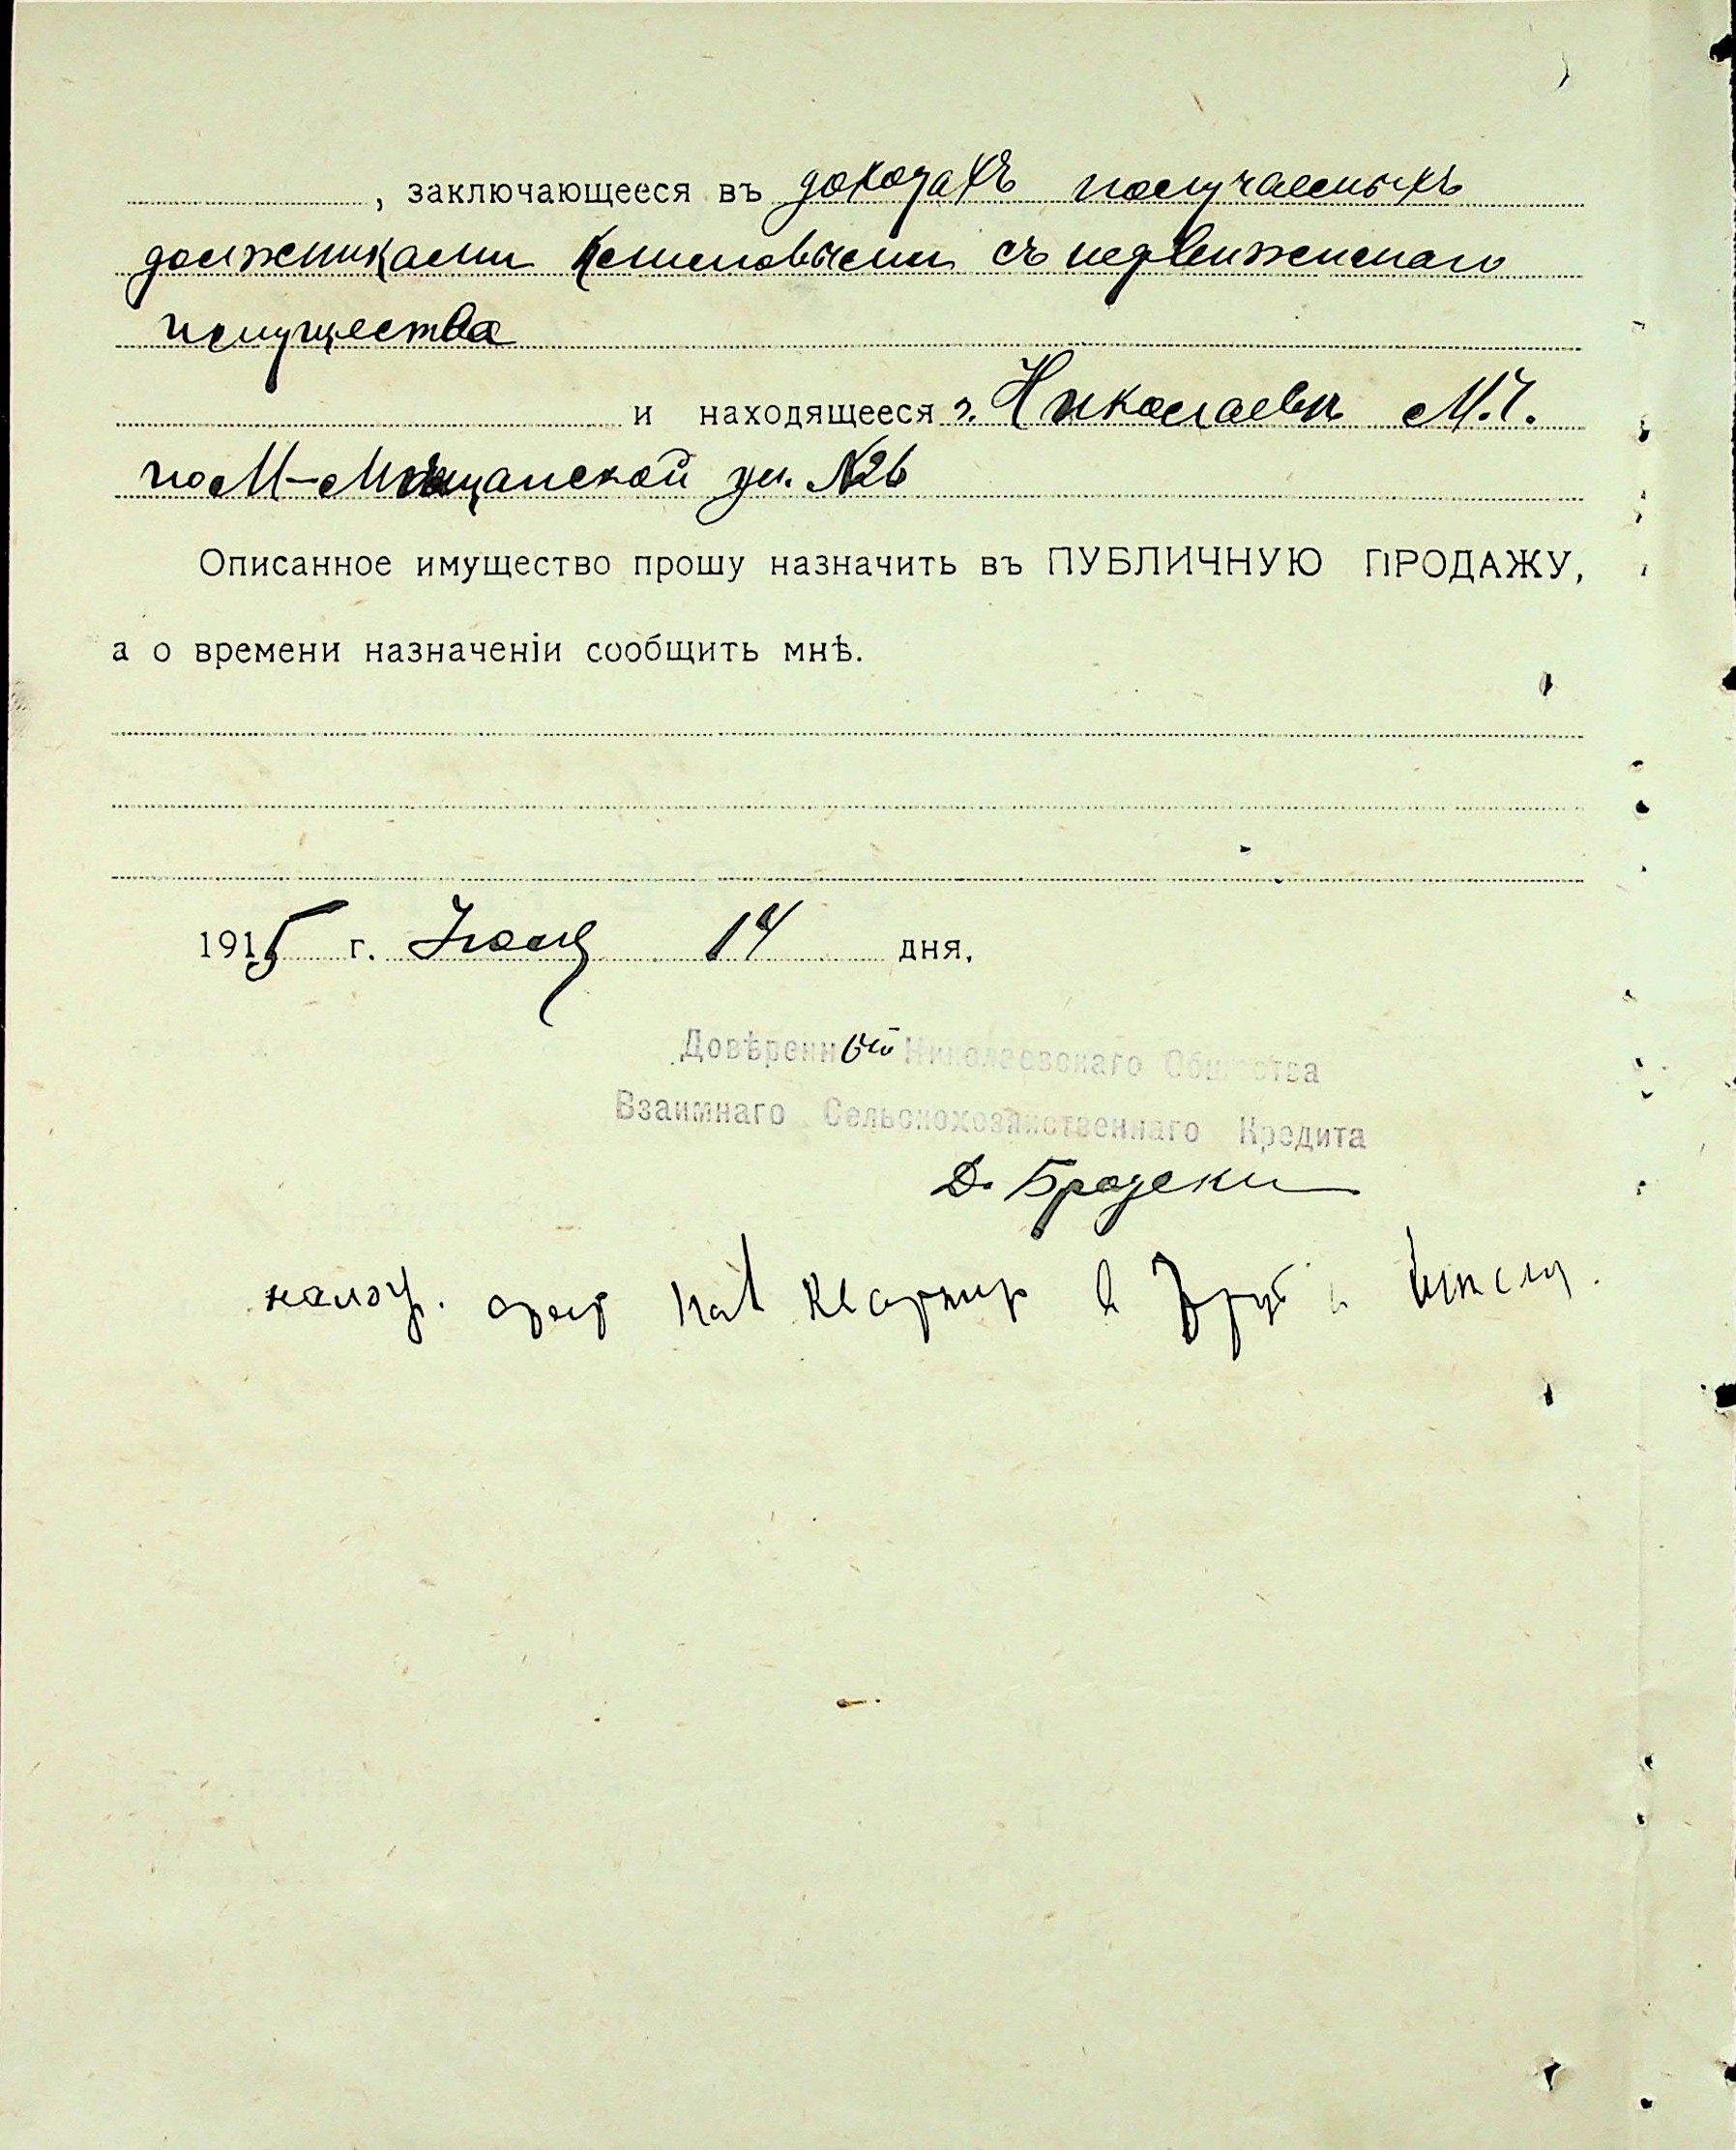 , заключающееся въ доходахъ получаемыхъ
должниками съ недвижимаго
имущества
и находящееся г. Николаевъ М.Ч.
по М-Мѣщанской ул. №26
Описанное имущество прошу назначить въ ПУБЛИЧНУЮ ПРОДАЖУ,
а о времени назначеніи сообщить мнѣ.
1915 г. Іюля 14 дня.
Довѣренный Николаевскаго Общества
Взаимнаго Сельскохозяйственнаго Кредита
Д. Бродски
налож. арест на квартир в